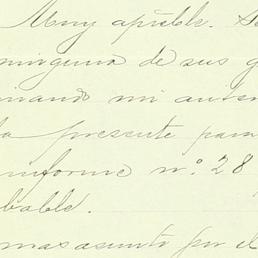 Muy apreble. S
ninguna de sus g
mi
la presente para
informe nº. 28
bable.
mas asunto por el